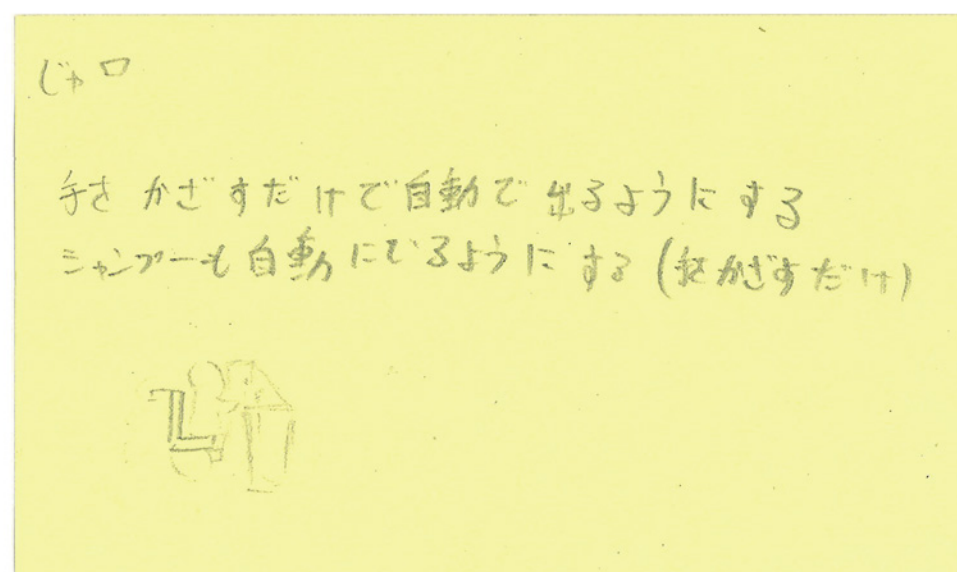 じゃ口
手をかざすだけで自動で出るようにする
シャンプーも自動にでるようにする(手をかざすだけ)